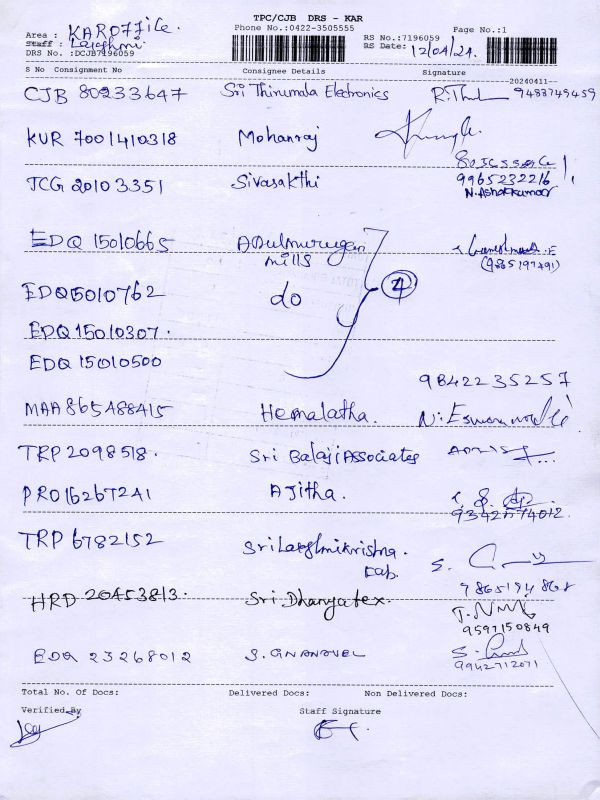 TPC/CJB DRS - KAR
Area : KAROFFICE.
Phone No.:0422-3505555
Page No.:1
Staff :
RS No.:7196059
DRS No. :DCJB7196059
RS Date: 12/04/24.
S No Consignment No Consignee Details Signature
20240411
CJB 80233647 Sri Thirumala Electronics R.Thul 9483749459
KUR 7001410318 Mohanraj
TCG 20103351 Sivasakthi 9965232216
N.Ashokkumar
EDQ 15010665 Adulmurugan
mills
(9865197491)
EDQ5010762 do 4
EDQ 15010307.
EDQ 15010500
9842235257
MAA 865488415 Hemalatha.
TRP 2098518. Sri Balaji Associates
PRO16267241 Ajitha.
TRP 6782152 Srilakshmikrishna.
Lab.
HRD 20453813. Sri Dhanyatex.
9597150849
EDQ 23268012 S. GNANAVEL
9942712071
Total No. Of Docs: Delivered Docs: Non Delivered Docs:
Verified By Staff Signature